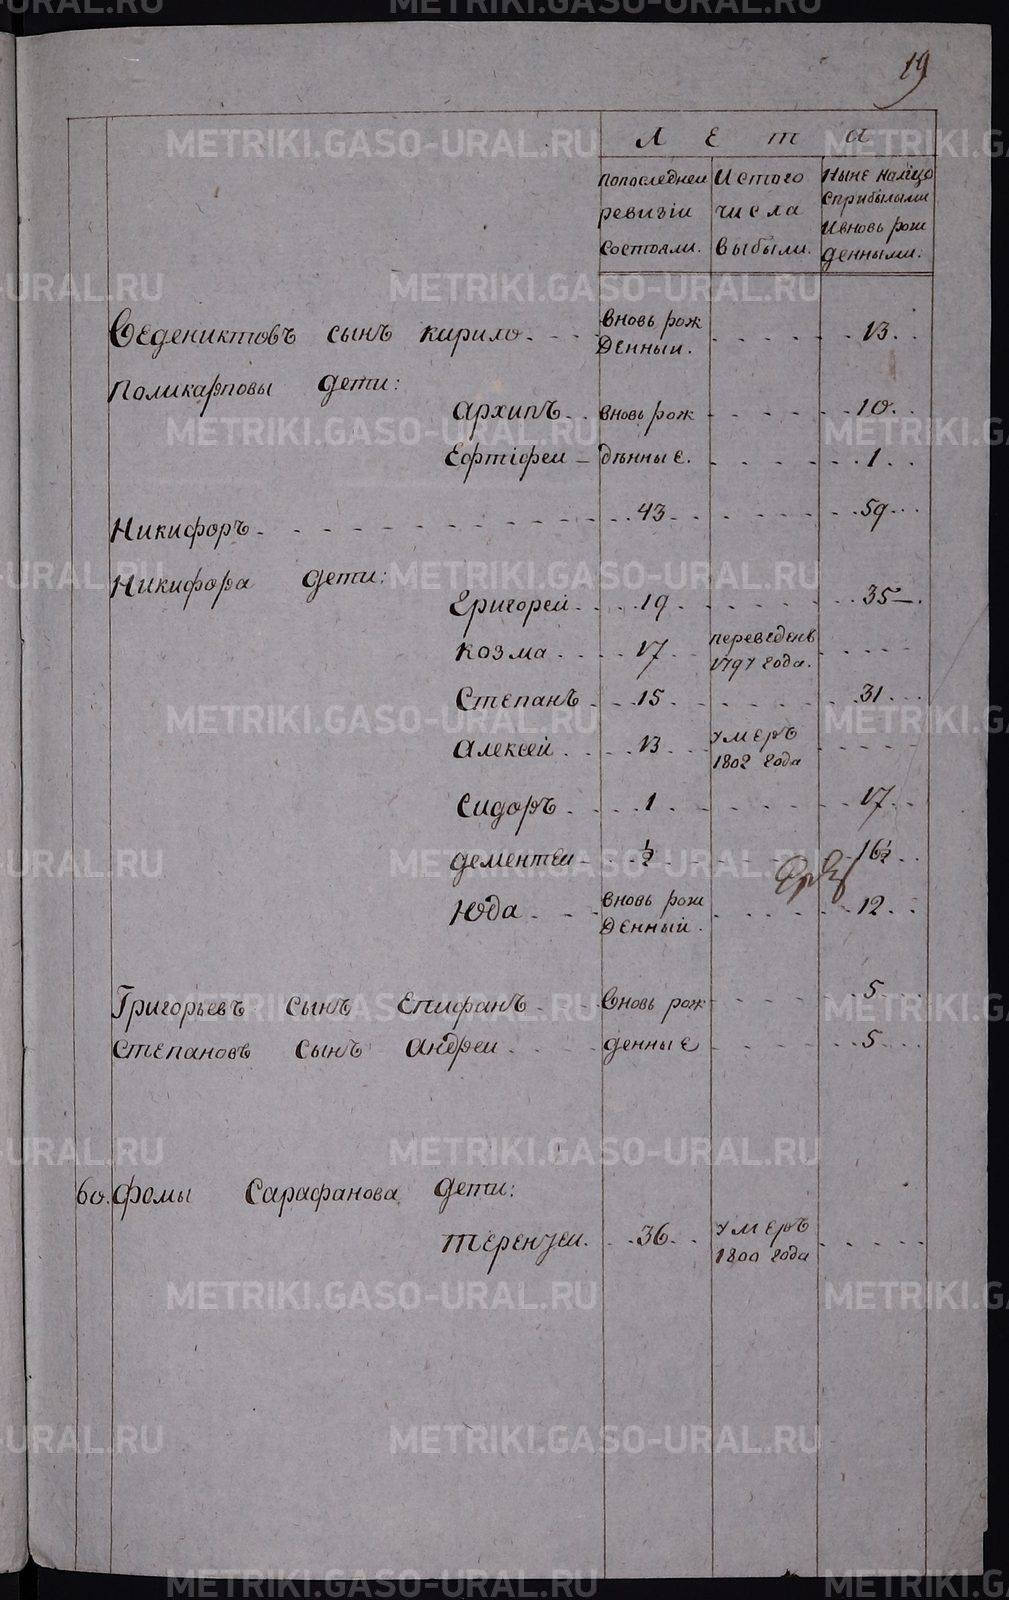 19
Лета
Попоследней ревизіи состояли.
Истого числа выбыли.
Ныне налицо сприбылыми ивновь рожденными:
Ведениктовъ сынъ кирило - - вновь рожденный. - - - - - 13.
Поликарповы дети:
архипъ - вновь рож - - - - 10.
Ефтіфеи - дѣнные. - - - - 1
Никифоръ - - - - 43 - - - - 59
Никифора дети:
Григорей - - 19 - - - - 35
козма - - 17 переведенъ 1797 года. - - - -
Степанъ - - 15 - - - - 31
алексей - - 13 умеръ 1802 года - - - -
Сидоръ - - 1 - - - - 17
дементеи - - ½ - - - - 16½
Юда - - вновь рожденный. - - - - 12
Григорьевъ сынъ Епифанъ - вновь рож - - - - 5
степановъ сынъ андреи - - денные - - - - 5
60. Фомы Сарафанова дети:
терентеи. - - 36 умеръ 1800 года - - - -
METRIKI.GASO-URAL.RU